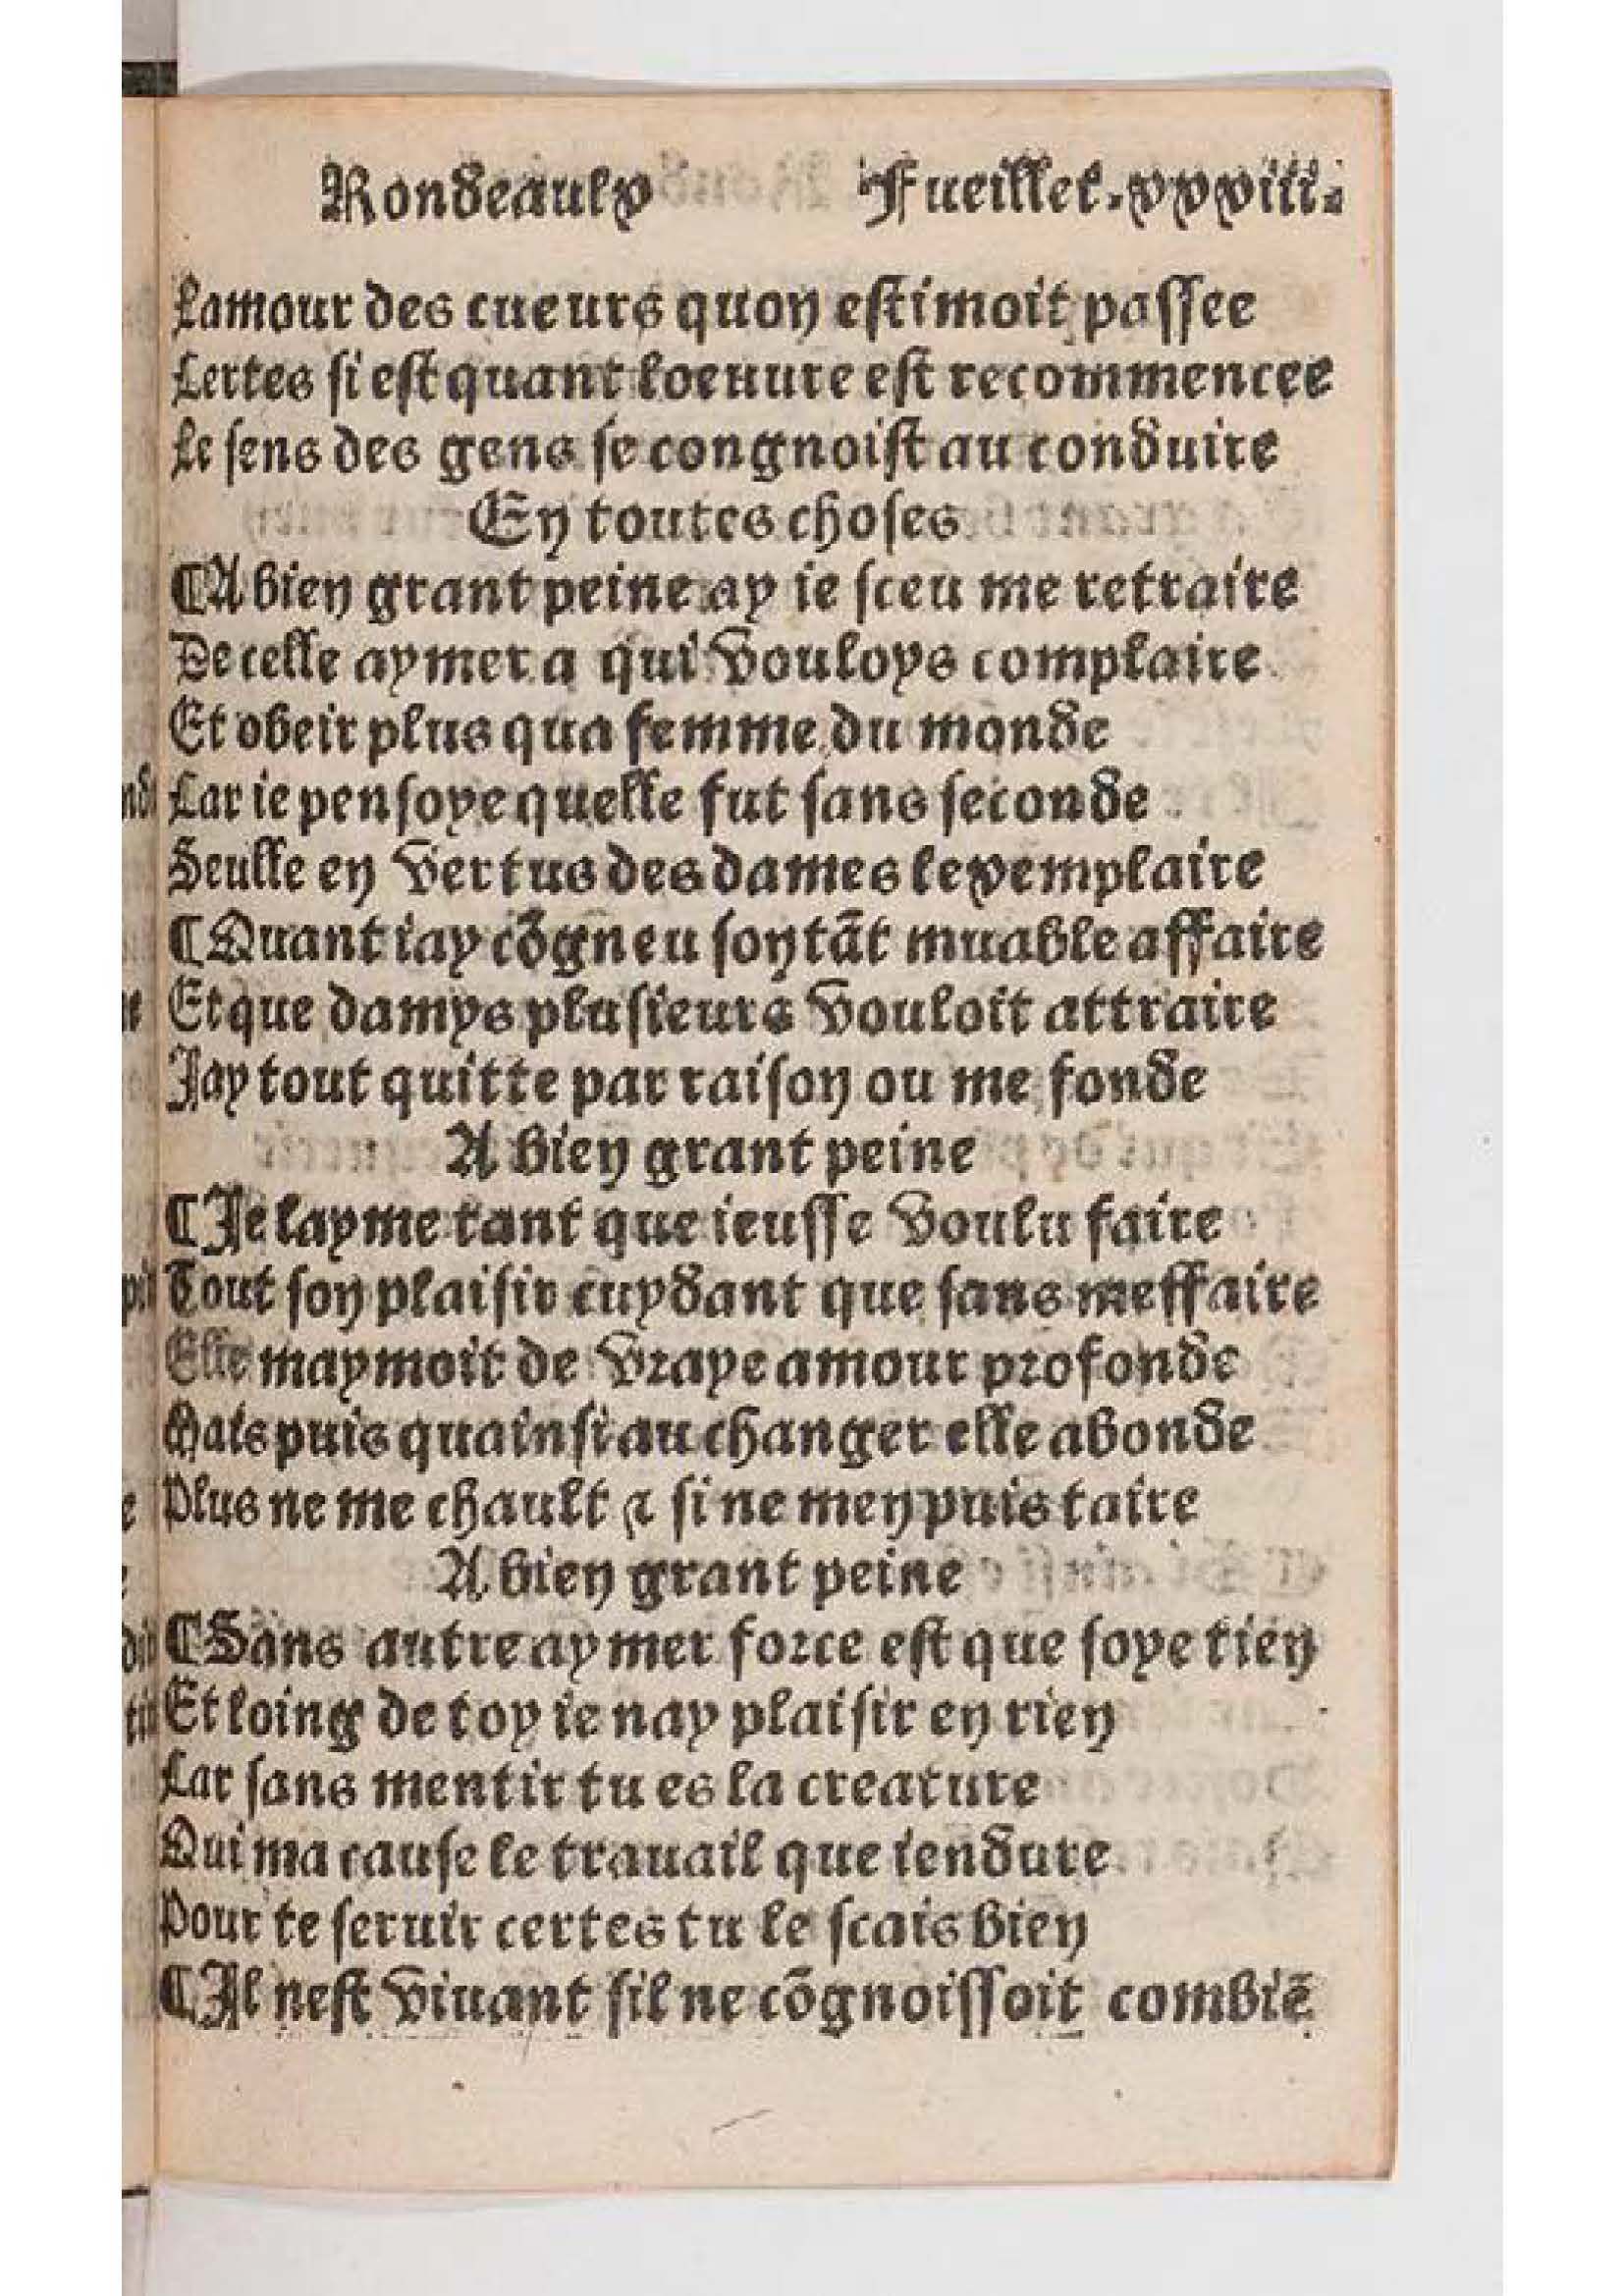 Rondeaulx Fueillet.xxxiii.
Lamour des cueurs quon estimoit passee
Certes si est quant loeuure est recommencee
Le sens des gens se congnoist au conduire
En toutes choses
¶A bien grant peine ay ie sceu me retraire
De celle aymer a qui vouloys complaire
Et obeir plus qua femme du monde
Car ie pensoye quelle fut sans seconde
Seulle en vertus des dames lexemplaire
¶Quant iay cõgneu son tãt muable affaire
Et que damys plusieurs vouloit attraire
Jay tout quitte par raison ou me fonde
A bien grant peine
¶Je layme tant que ieusse voulu faire
Tout son plaisir cuydant que sans meffaire
Elle maymoit de vraye amour profonde
Mais puis quainsi au changer elle abonde
Plus ne me chault ⁊ si ne men puis taire
A bien grant peine
¶Sans autre aymer force est que soye tien
Et loing de toy ie nay plaisir en rien
Car sans mentir tu es la creature
Qui ma cause le trauail que iendure
Pour te seruir certes tu le scais bien
¶Il nest viuant sil ne cõgnoissoit combiẽ